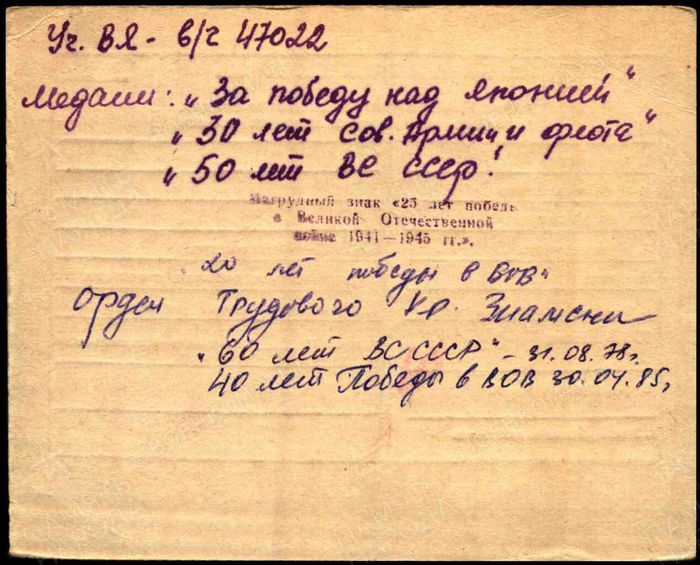 Уч. ВЯ - в/ч 47022
Медали: „За победу над Японией"
„30 лет Сов. Армии и флота"
„50 лет ВС СССР".
Нагрудный знак «25 лет победы
в Великой Отечественной
войне 1941—1945 гг.».
„20 лет победы в ВОВ"
Орден Трудового Кр. Знамени
„60 лет ВС СССР" - 31.08.78г.
40 лет Победы в ВОВ 30.04.85г